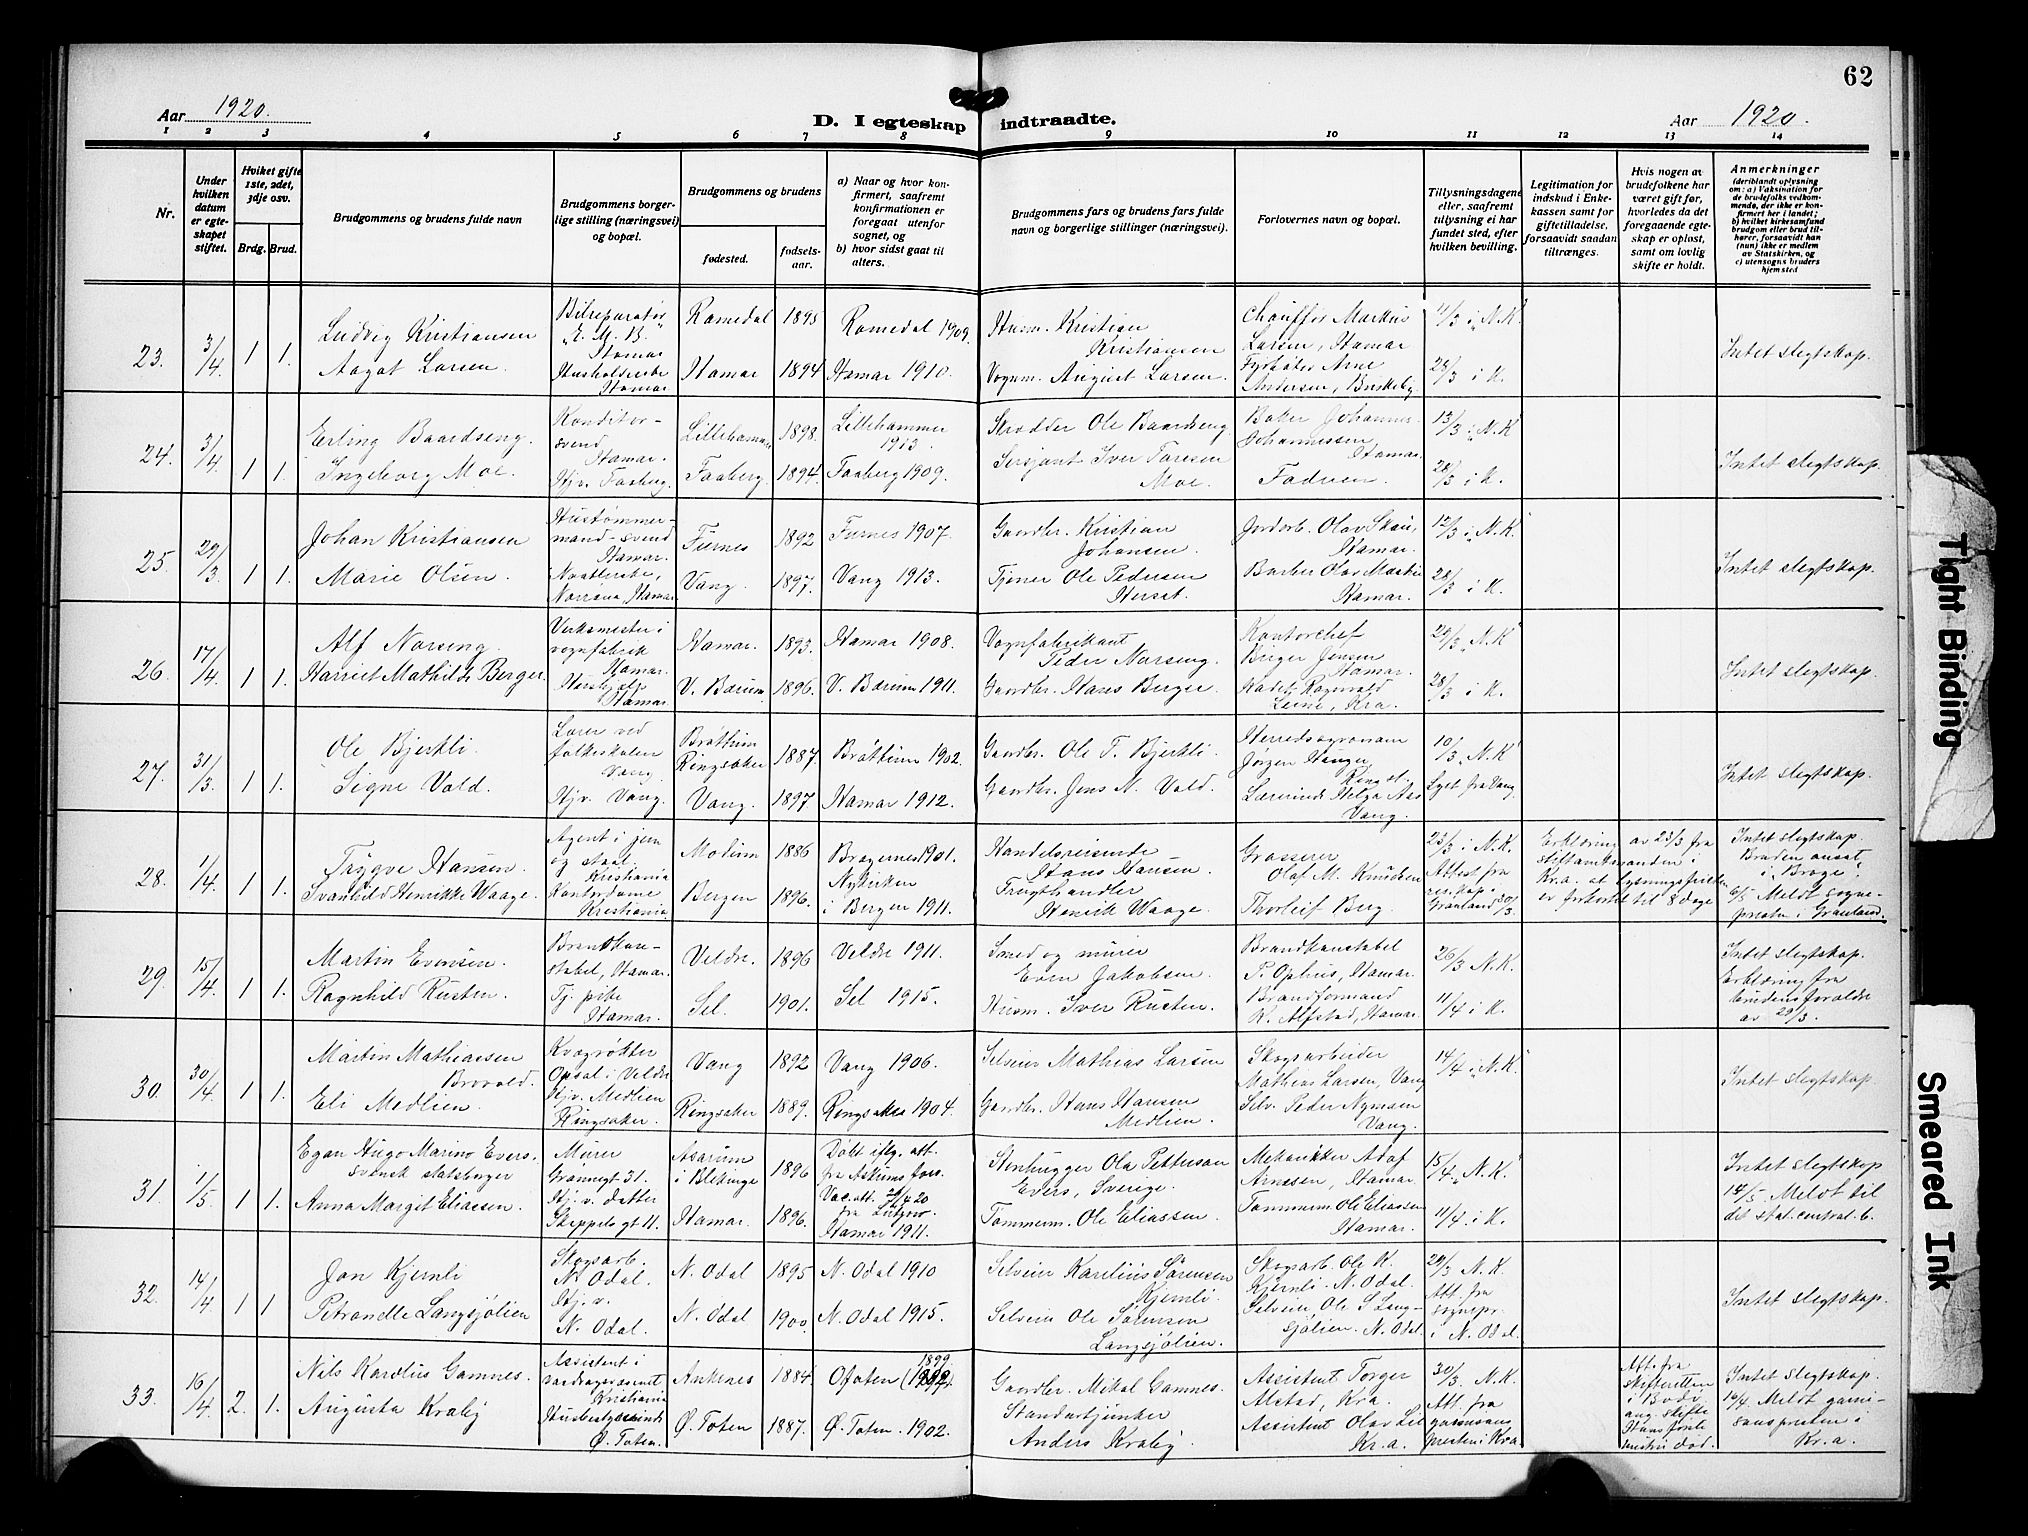 62
Aar 1920.
D. I egteskap indtraadte.
Aar 1920.
1 2 3 4 5 6 7 8 9 10 11 12 13 14
Nr.
Under hvilken datum er egteskapet stiftet.
Hviket gifte 1ste, 2det, 3dje osv.
Brdg. Brud.
Brudgommens og brudens fulde navn
Brudgommens borgerlige stilling (næringsvei) og bopæl.
Brudgommens og brudens
fødested.
fødselsaar.
a) Naar og hvor konfirmert, saafremt konfirmationen er foregaat utenfor sognet, og
b) hvor sidst gaat til alters.
Brudgommens fars og brudens fars fulde navn og borgerlige stillinger (næringsvei).
Forlovernes navn og bopæl.
Tillysningsdagene eller, saafremt tillysning ei har fundet sted, efter hvilken bevilling.
Legitimation for indskud i Enkekassen samt for giftetilladelse, forsaavidt saadan tiltrænges.
Hvis nogen av brudefolkene har været gift før, hvorledes da det foregaaende egteskap er opløst, samt om lovlig skifte er holdt.
Anmerkninger
(deriblandt oplysning om: a) Vaksination for de brudefolks vedkommende, der ikke er konfirmert her i landet; b) hvilket kirkesamfund brudgom eller brud tilhører, forsaavidt han (hun) ikke er medlem av Statskirken, og c) utensogns bruders hjemsted
23. 3/4 1 1. Ludvig Kristiansen
Aagot Larsen.
Bilreparatør
"E. M. B."
Hamar
Husholderske
Hamar
Romedal 1895 Romedal 1909.
Hamar 1894 Hamar 1910.
Husm. Kristian
Kristiansen
Vognm. August Larsen.
Chauffør Markus
Larsen, Hamar
Fyrbøter Arne
Andersen, Buskeby
11/3 i "N.K."
28/3 i K.
Intet slegtskap.
24. 3/4 1 1. Erling Baardseng.
Ingeborg Moe.
Konditor-
svend
Hamar.
Hj.v. Faaberg.
Lillehammer 1898. Lillehammer
1913.
Faaberg. 1894. Faaberg 1909.
Skrædder Ole Baardseng.
Sersjant Iver Toresen
Moe.
Baker Johannes
Johannessen,
Hamar.
Fadren.
13/3 i "N.K"
28/3 i K.
Intet slegtskap.
25. 29/3 1 1. Johan Kristiansen
Marie Olsen.
Hustømmer-
mand-svend
Hamar.
Norrøna, Hamar.
Furnes 1892 Furnes 1907.
Vang. 1897. Vang 1913.
Gaardbr. Kristian
Johansen.
Tjener Ole Pedersen
Herset.
Jordarb. Olav Skau,
Hamar.
Barber Olav
Hamar.
12/3 i "N.K."
28/3 i K.
Intet slegtskap.
26. 17/4 1 1. Alf Narseng.
Harriet Mathilde Berger.
Verksmester i
vognfabrik
Hamar.
Hushjelp
Hamar.
Hamar. 1893. Hamar 1908.
V. Bærum 1896. V. Bærum 1911.
Vognfabrikant
Peder Narseng.
Gaardbr. Hans Berger.
Kontorchef
Birger Jensen
Hamar.
Kadet Ragnvald
Leine, Kra.
29/3 "N.K"
28/3 i K.
Intet slegtskap.
27. 31/3 1 1. Ole Bjerkli.
Signe Vold.
Lærer ved
folkeskolen
Vang.
Hj.v. Vang.
Brøttum
Ringsaker 1887. Brøttum 1902.
Vang. 1897 Hamar 1912.
Gaardbr. Ole T. Bjerkli.
Gaardbr. Jens N. Vold.
Herredsagronom
Jørgen Hauger,
Ringst.
Lærerinde Helga Aas
Vang.
10/3 "N.K"
Lyst fra Vang.
Intet slegtskap.
28. 1/4 1 1. Trygve Hansen.
Svanhild Henrikke Waage.
Agent i jern
og staal.
Kristiania
Kontordame
Kristiania
Modum 1886 Bragernes 1901.
Bergen 1896. Nykirken
i Bergen 1911.
Handelsreisende
Hans Hansen.
Frugthandler
Henrik Waage.
Grosserer
Olaf M. Knudsen
Thorleif Berg.
23/3 i "N.K.
Attest fra
res. kap. i
Grønland 30/3
Erklæring av 23/3 fra
stiftamtmanden i
Kr.a. at lysningsfristen
er forkortet til 8 dage
Intet slegtskap.
Bruden ansat
i Brage.
6/5 Meldt sogne-
presten i Grønland.
29. 15/4 1 1. Martin Evensen.
Ragnhild Rusten.
Brandkon-
stabel, Hamar.
Tj. pike
Hamar.
Veldre. 1896 Veldre 1911.
Sel. 1901. Sel 1915.
Smed og murer
Even Jakobsen.
Husm. Iver Rusten.
Brandkonstabel
P. Ophus, Hamar.
Brandformand
K. Alfstad, Hamar.
26/3 N.K.
11/4 i K.
Intet slegtskap.
Erklæring fra
brudens forældre
av 29/3.
30. 30/4 1 1. Martin Mathiassen
Brovold.
Eli Medlien.
Kvægrøkter
Opsal i Veldre
Hj.v. Medlien
Ringsaker.
Vang 1892 Vang 1906.
Ringsaker 1889. Ringsaker 1904.
Selveier Mathias Larsen
Gaardbr. Hans Hansen
Medlien.
Skogsarbeider
Mathias Larsen, Vang
Selv. Peder Nymoen
Vang.
14/4 i "N.K"
Intet slegtskap.
31. 1/5 1 1. Egon Hugo Marino Evers.
svensk statsborger
Anna Margit Eliassen.
Murer
Grønnegt 31.
Hj. v. datter
Skappels gt 11.
Asarum
i Blekinge 1896
Hamar. 1896.
Døbt iflg. att.
fra Askums fors.
Vac. att. 20/4 20
Hamar 1911.
Stenhugger Ola Petterson
Evers, Sverige.
Tømmerm. Ole Eliassen.
Mekanikker Adof
Arnesen, Hamar.
Tømmerm. Ole Eliassen
Hamar.
15/4, "N.K."
11/4 i K.
Intet slegtskap
14/5 Meldt til
det stat. central. b.
32. 14/4 1 1 Jon Kjernli
Petronelle Langsjølien
Skogsarb.
N. Odal.
Hj. v.
N. Odal.
N. Odal 1895 N. Odal 1910
N. Odal 1900 N. Odal 1915.
Selveier Karelius Sørensen
Kjernli.
Selveier Ole Sørensen
Langsjølien.
Skogsarb. Ole K.
Kjernli. N. Odal.
Selveier, Ole S Lang-
sjølien. N. Odal.
29/3 N.K.
Att. fra
sognepr.
i N. Odal.
Intet slegtskap.
33. 16/4 2. 1. Nils Kardlus Gamnes.
Augusta Kraby
Assistent i
vasdragsvæsenet
Kristiania
Husbestyrerinde
Ø. Toten.
Ankenes 1884 Ofoten (1899).
Ø. Toten 1887. Ø. Toten. 1902.
Gaardbr. Mikal Gamnes.
Standartjunker
Anders Kraby.
Assistent Torger
Alstad, Kra.
Assistent Olav Lie
Kr.a.
30/3. N.K.
Att. fra
garnisons
presten i Kra.
Att. fra
skifteretten
i Bodø
ang. skifte
Hans første
hustru død.
Intet slegtskap.
19/4 Meldt garni-
sonspresten i
Kr.a.
Tight Binding
Smeared Ink